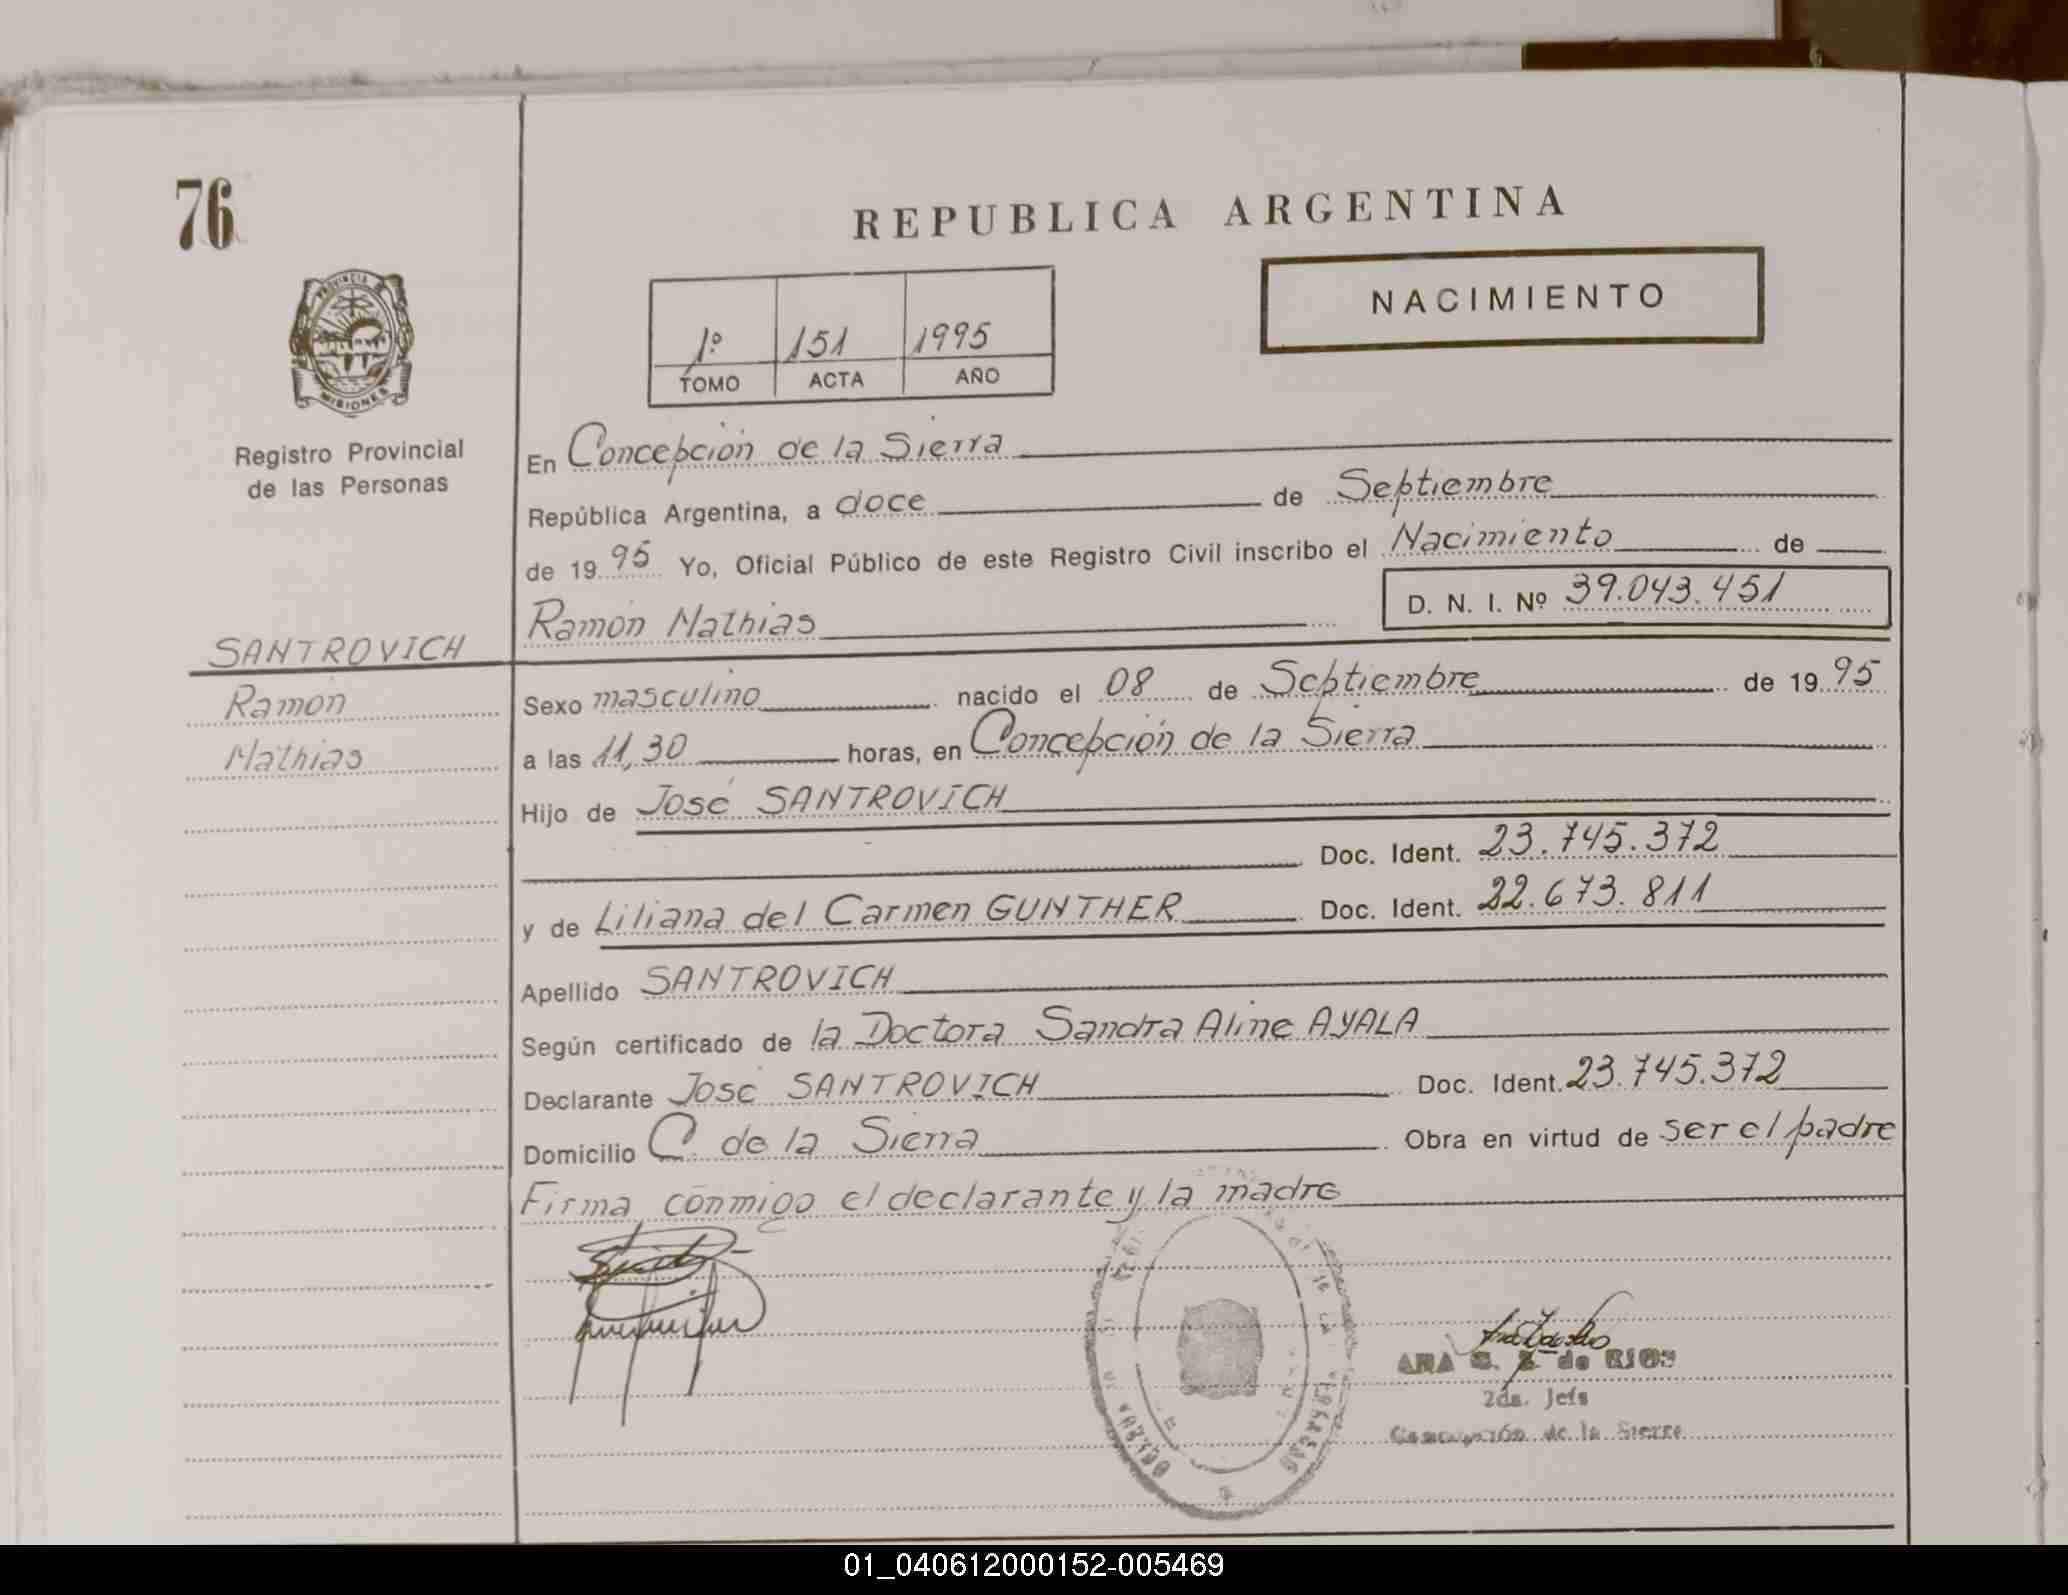 76
REPUBLICA ARGENTINA
NACIMIENTO
1º 151 1995
TOMO ACTA AÑO
PROVINCIA DE
MISIONES
Registro Provincial
de las Personas
En Concepción de la Sierra
República Argentina, a doce de Septiembre
de 1995 Yo, Oficial Público de este Registro Civil inscribo el Nacimiento de
D. N. I. Nº 39.043.451
Ramón Mathias
SANTROVICH
Ramón
Mathias
Sexo masculino nacido el 08 de Septiembre de 1995
a las 11,30 horas, en Concepción de la Sierra
Hijo de José SANTROVICH
Doc. Ident. 23.745.372
y de Liliana del Carmen GUNTHER Doc. Ident. 22.673.811
Apellido SANTROVICH
Según certificado de la Doctora Sandra Aline AYALA
Declarante José SANTROVICH Doc. Ident. 23.745.372
Domicilio C. de la Sierra Obra en virtud de ser el padre
Firma conmigo el declarante y la madre
ANA de RIOS
2da. Jefa
Concepción de la Sierra
01_040612000152-005469